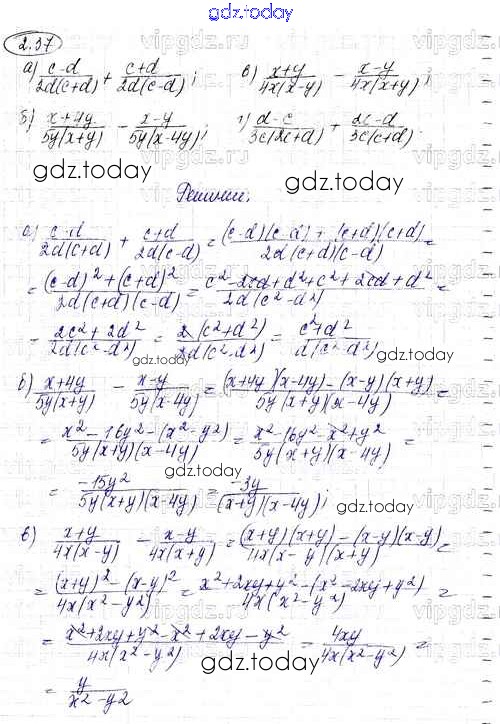 gdz.today
2.37
а) (c-d)/(2d(c+d)) + (c+d)/(2d(c-d)); в) (x+y)/(4x(x-y)) - (x-y)/(4x(x+y));
б) (x+4y)/(5y(x+y)) - (x-y)/(5y(x-4y)); г) (d-c)/(3c(2c+d)) + (2c-d)/(3c(c+d)).
gdz.today gdz.today
Решение:
а) (c-d)/(2d(c+d)) + (c+d)/(2d(c-d)) = ((c-d)(c-d) + (c+d)(c+d))/(2d(c+d)(c-d)) =
= ((c-d)²+(c+d)²)/(2d(c+d)(c-d)) = (c²-2cd+d²+c²+2cd+d²)/(2d(c²-d²)) =
= (2c²+2d²)/(2d(c²-d²)) = (2(c²+d²))/(2d(c²-d²)) = (c²+d²)/(d(c²-d²))
gdz.today gdz.today
б) (x+4y)/(5y(x+y)) - (x-y)/(5y(x-4y)) = ((x+4y)(x-4y)-(x-y)(x+y))/(5y(x+y)(x-4y)) =
= (x²-16y²-(x²-y²))/(5y(x+y)(x-4y)) = (x²-16y²-x²+y²)/(5y(x+y)(x-4y)) =
gdz.today
= (-15y²)/(5y(x+y)(x-4y)) = (-3y)/((x+y)(x-4y));
gdz.today
в) (x+y)/(4x(x-y)) - (x-y)/(4x(x+y)) = ((x+y)(x+y)-(x-y)(x-y))/(4x(x-y)(x+y)) =
gdz.today
= ((x+y)²-(x-y)²)/(4x(x²-y²)) = (x²+2xy+y²-(x²-2xy+y²))/(4x(x²-y²)) =
= (x²+2xy+y²-x²+2xy-y²)/(4x(x²-y²)) = (4xy)/(4x(x²-y²)) =
gdz.today
= y/(x²-y2)